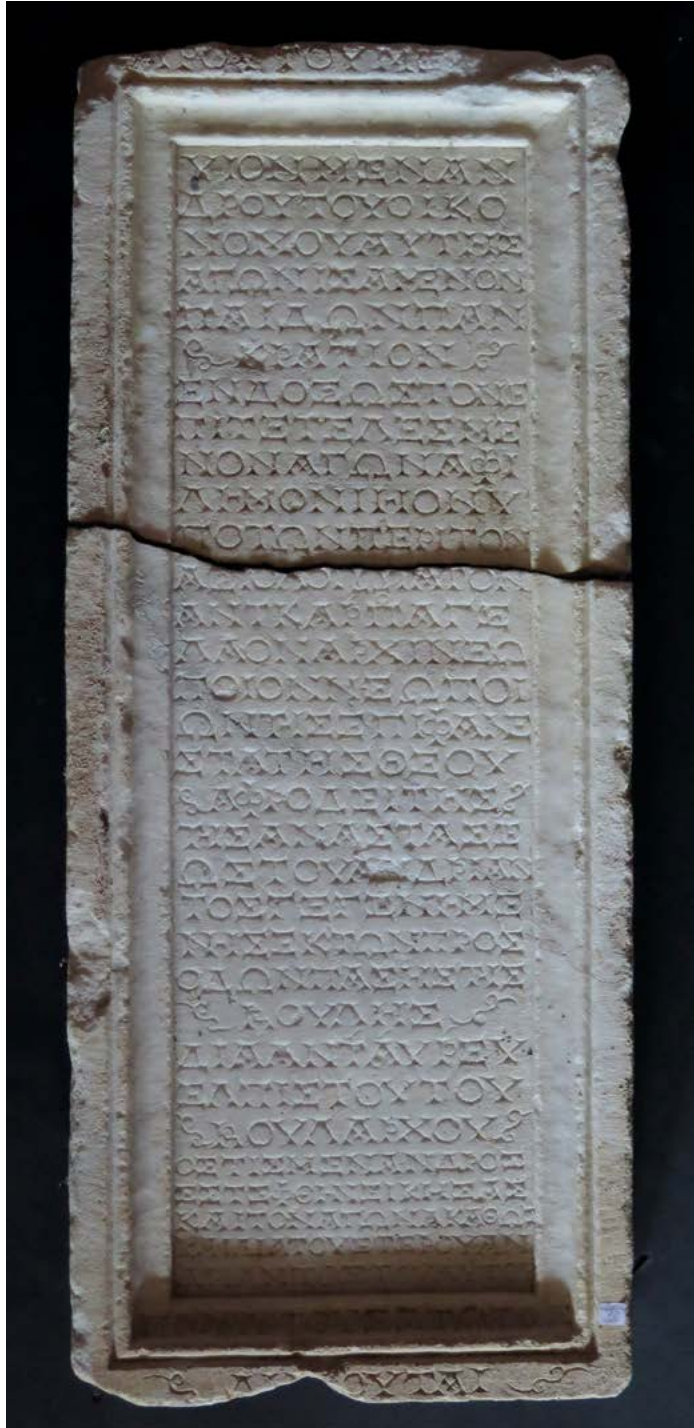 ΥΙΟΝ ΜΕΝΑΝ
ΔΡΟΥ ΤΟΥ ΟΙΚΟ
ΝΟΜΟΥ ΑΥΤΗΣ
ΑΓΩΝΙΣΑΜΕΝΟΝ
ΠΑΙΔΩΝ ΠΑΝ
ΚΡΑΤΙΟΝ
ΕΝΔΟΞΩΣ ΤΟΝ Ε
ΠΙΤΕΤΕΛΕΣΜΕ
ΝΟΝ ΑΓΩΝΑ ΦΙ
ΛΗΜΟΝΙΗΟΝ Υ
ΠΟ ΤΩΝ ΠΕΡΙ ΤΟΝ
ΑΞΙΟΛΟΓΩΤΑΤΟΝ
ΑΝΤ ΚΑΡΠ ΑΓΕ
ΛΑΟΝ ΑΡΧΙΝΕΩ
ΠΟΙΟΝ ΝΕΩΠΟΙ
ΩΝ ΤΗΣ ΕΠΙΦΑΝΕ
ΣΤΑΤΗΣ ΘΕΟΥ
ΑΦΡΟΔΕΙΤΗΣ
ΤΗΣ ΑΝΑΣΤΑΣΕ
ΩΣ ΤΟΥ ΑΝΔΡΙΑΝ
ΤΟΣ ΓΕΓΟΝΗΜΕ
ΝΗΣ ΕΚ ΤΩΝ ΠΡΟΣ
ΟΔΩΝ ΠΑΣΗΣ ΤΗΣ
ΒΟΥΛΗΣ
ΔΙΑ ΑΝΤ ΑΥΡ ΕΥ
ΕΛΠΙΣΤΟΥ ΤΟΥ
ΒΟΥΛΑΡΧΟΥ
ΟΣΤΙΣ ΜΕΝΑΝΔΡΟΣ
ΕΣΤΕΦΘΗ ΝΕΙΚΗΣΑΣ
ΚΑΙ ΤΟΝ ΑΓΩΝΑ ΚΑΘΩΣ